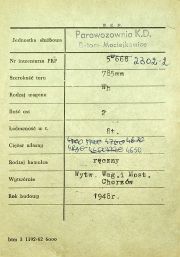 P. K. P.
Jednostka służbowa
Parowozownia K.D.
Bytom-Maciejkowice
Nr inwentarza PKP 5668 2302-2
Szerokość toru 785mm
Rodzaj wagonu Wp
Ilość osi 2
Ładowność w t. 8t.
Ciężar własny 4650
Rodzaj hamulca ręczny
Wytwórnia Wytw. Wag. i Most.
Chorzów
Rok budowy 1948r.